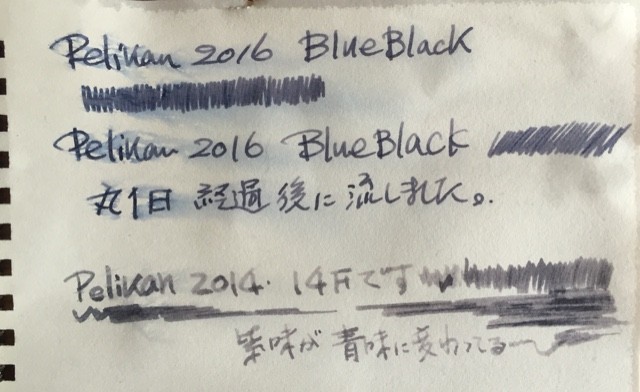 Pelikan 2016 BlueBlack
Pelikan 2016 BlueBlack
丸1日 経過後に流しました。
Pelikan 2014. 14Fです
紫味が 青味に変わってる〜